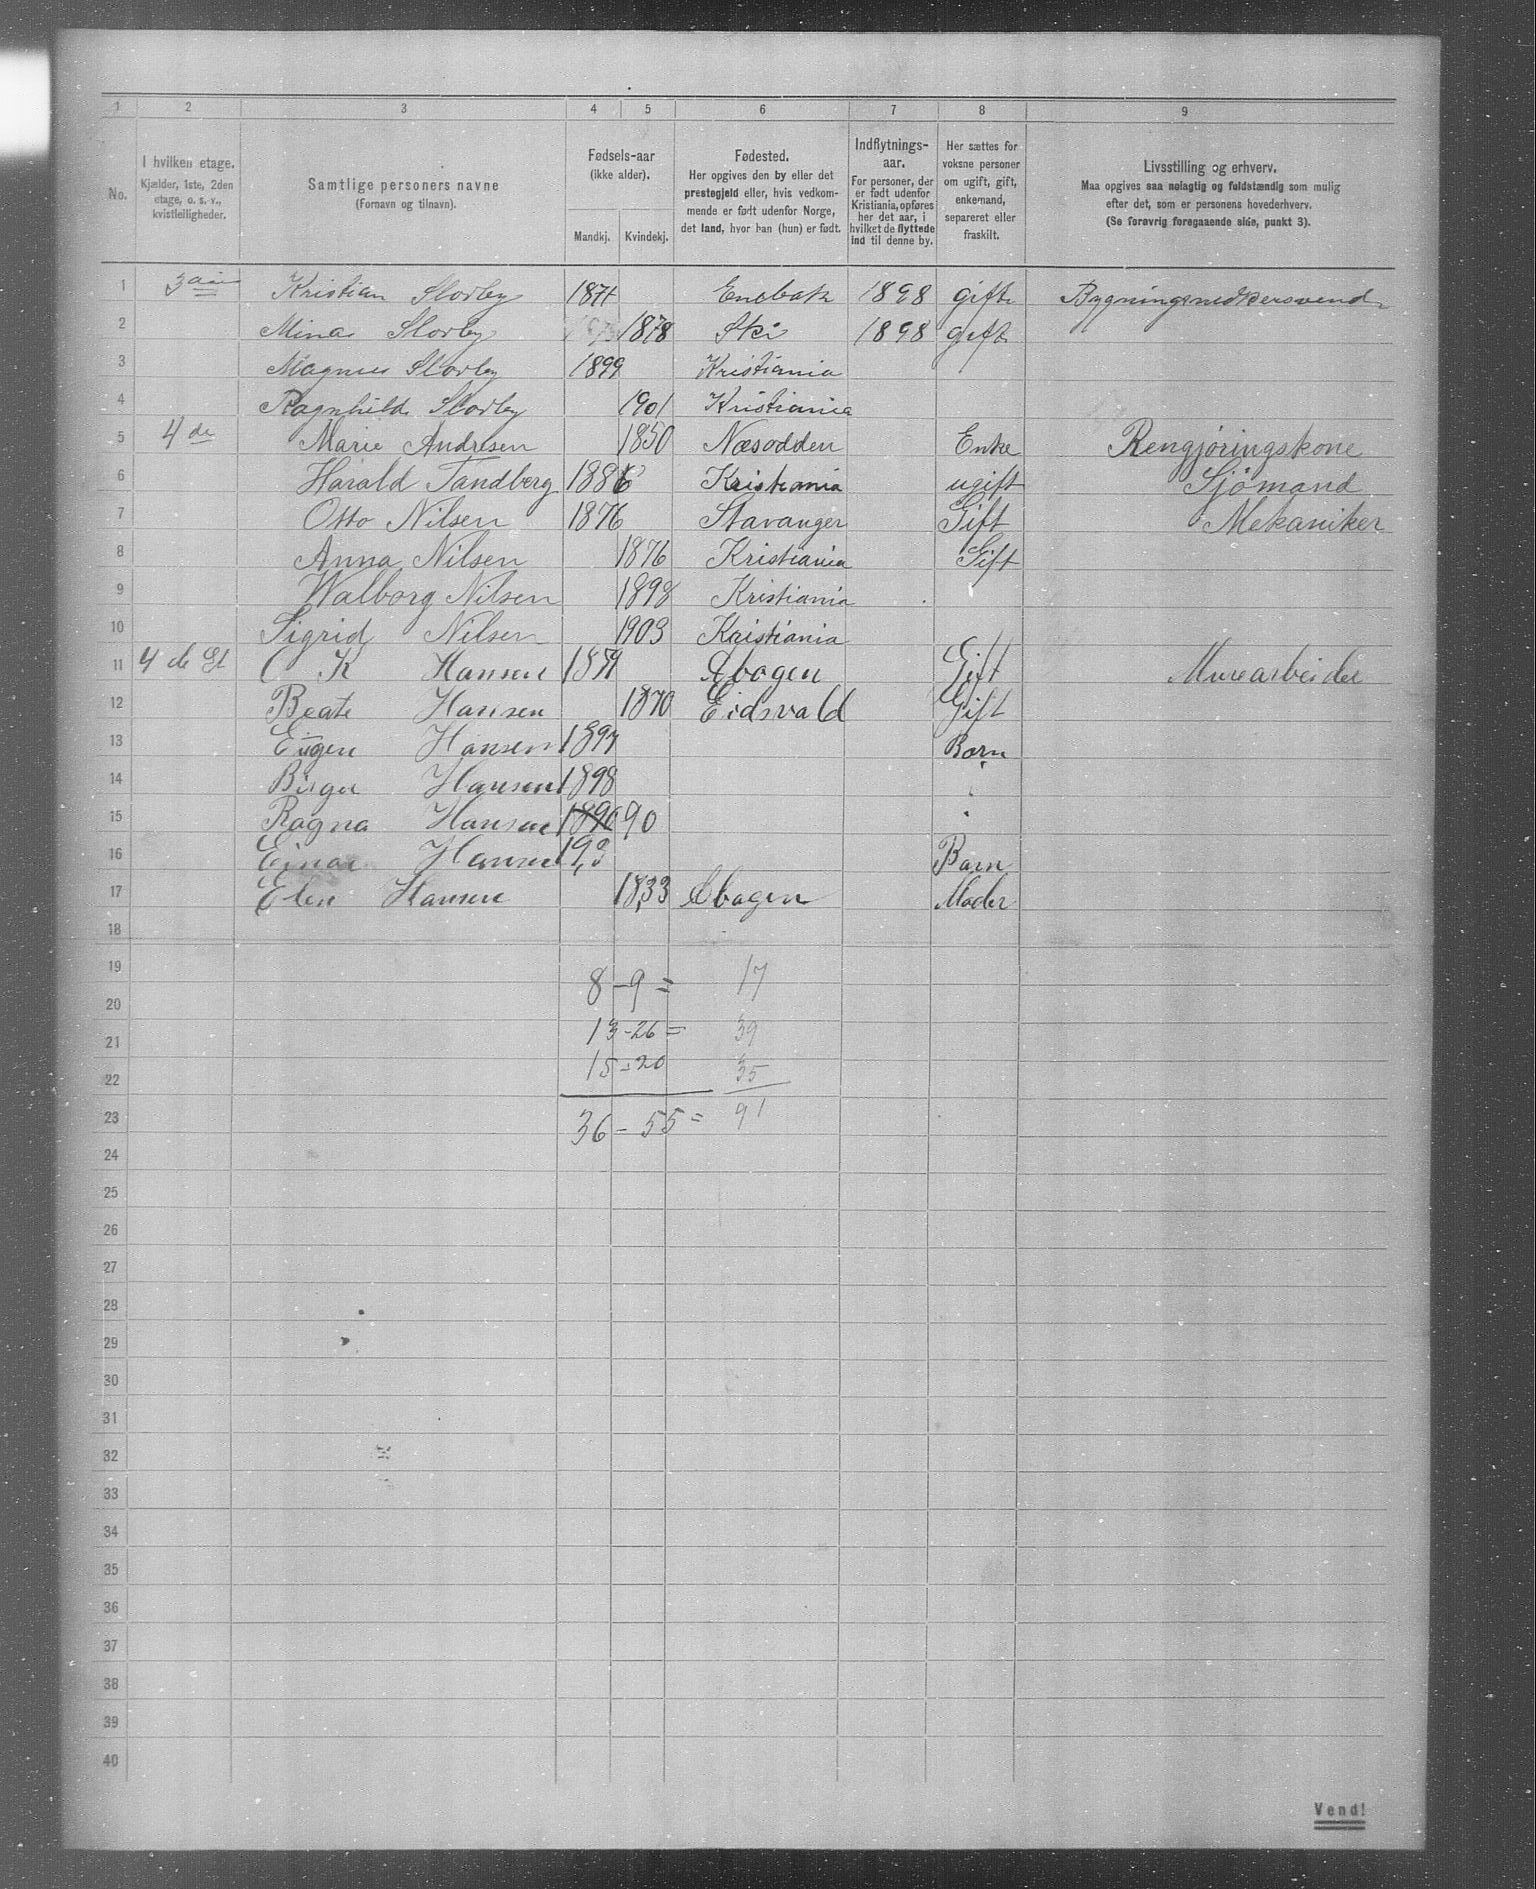 1 2 3 4 5 6 7 8 9
No. I hvilken etage. Kjælder, 1ste, 2den etage, o. s. v., kvistleiligheder. Samtlige personers navne (Fornavn og tilnavn). Fødsels-aar (ikke alder). Mandkj. Kvindekj. Fødested. Her opgives den by eller det prestegjeld eller, hvis vedkommende er født udenfor Norge, det land, hvor han (hun) er født. Indflytnings-aar. For personer, der er født udenfor Kristiania, opføres her det aar, i hvilket de flyttede ind til denne by. Her sættes for voksne personer om ugift, gift, enkemand, separeret eller fraskilt. Livsstilling og erhverv. Maa opgives saa nøiagtig og fuldstændig som mulig efter det, som er personens hovederhverv. (Se forøvrig foregaaende side, punkt 3).
1 Kristian Slorby 1871 Enebak 1898 gift Bygningsnedkersvend
2 Mina Slorby 1878 Ski 1898 gift
3 Magnus Slorby 1899 Kristiania
4 Ragnhild Slorby 1901 Kristiania
5 4 de Marie Andresen 1850 Næsodden Enke Rengjøringskone
6 Harald Tandberg 1886 Kristiania ugift Sjömand
7 Otto Nilsen 1876 Stavanger Gift Mekaniker
8 Anna Nilsen 1876 Kristiania Gift
9 Walborg Nilsen 1898 Kristiania
10 Sigrid Nilsen 1903 Kristiania
11 4 de Et K Hansen Gift Murearbeider
12 Beate Hansen 1870 Eidsvald Gift
13 Eugen Hansen 1897 Barn
14 Birger Hansen 1898
15 Ragna Hansen 1890 90
16 Einar Hansen Barn
17 Elen Hansen 1833 Moder
18
19 8 - 9 = 17
20
21 13 - 26 = 39
22 15 - 20 35
23 36 - 55 = 91
24
25
26
27
28
29
30
31
32
33
34
35
36
37
38
39
40
Vend!